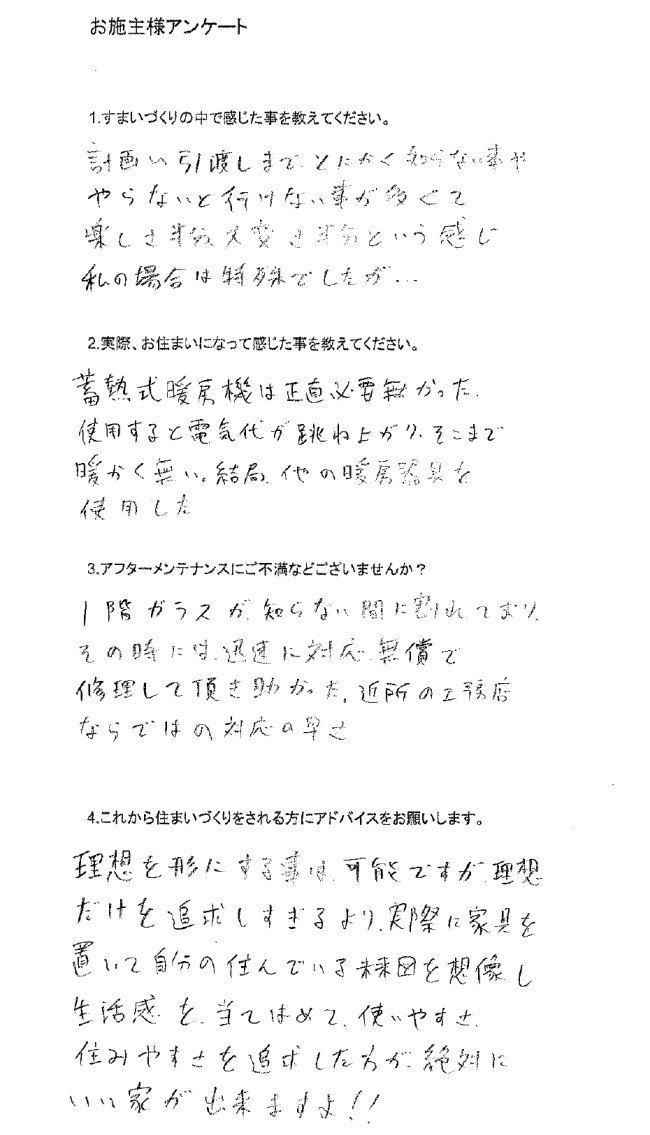 お施主様アンケート
1.すまいづくりの中で感じた事を教えてください。
計画〜引渡しまで、とにかく知らない事や
やらないと行けない事が多くて
楽しさ半分大変さ半分という感じ
私の場合は特殊でしたが…
2.実際、お住まいになって感じた事を教えてください。
蓄熱式暖房機は正直必要無かった、
使用すると電気代が跳ね上がり、そこまで
暖かく無い。結局、他の暖房器具を
使用した
3.アフターメンテナンスにご不満などございませんか？
1階ガラスが、知らない間に割れており、
その時には、迅速に対応、無償で
修理して頂き助かった、近所の工務店
ならではの、対応の早さ
4.これから住まいづくりをされる方にアドバイスをお願いします。
理想を形にする事は、可能ですが、理想
だけを追求しすぎるより、実際に家具を
置いて自分の住んでいる未来図を想像し
生活感を、当てはめて、使いやすさ、
住みやすさを追求した方が、絶対に
いい家が出来ますよ!!